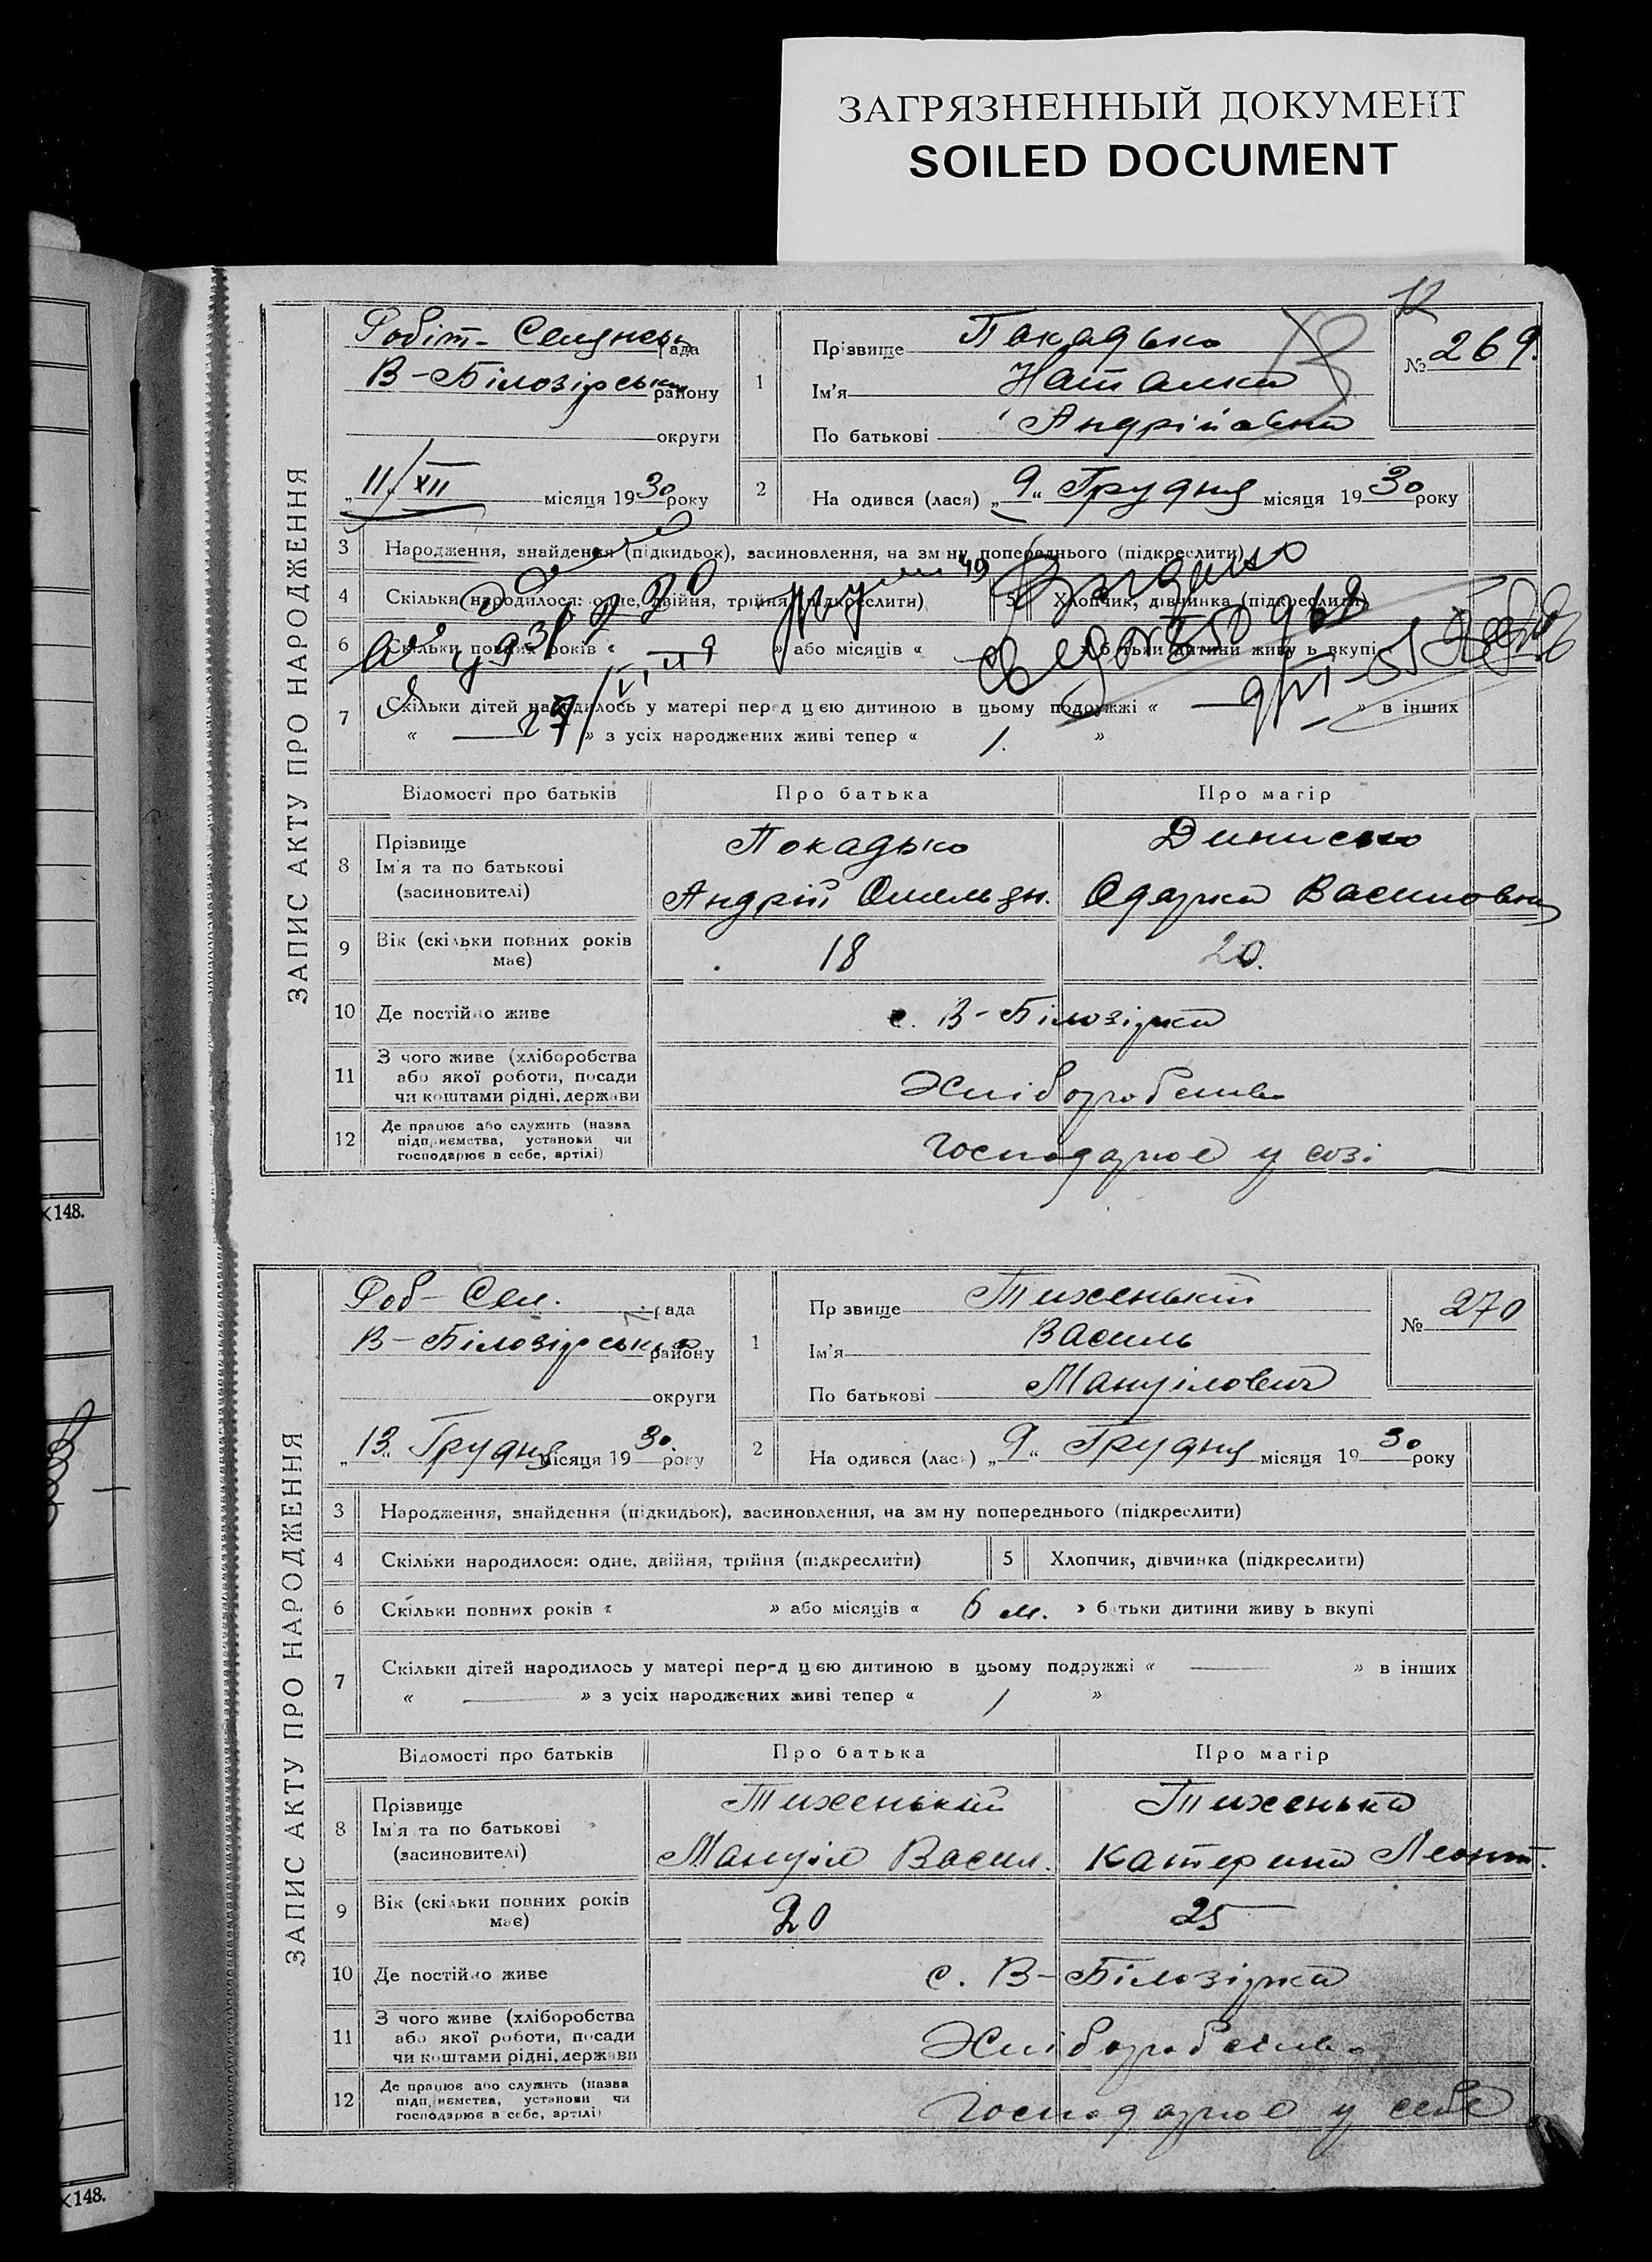 ЗАГРЯЗНЕННЫЙ ДОКУМЕНТ
SOILED DOCUMENT
ЗАПИС АКТУ ПРО НАРОДЖЕННЯ
Робіт-Селянськ рада
В-Білозірськ району
округи
„11/XII місяця 1930 року
1
Прізвище Покадько
Ім'я Наталка
По батькові Андріївна
№ 269.
2
На одився (лася) „9“ Грудня місяця 1930 року
3 Народження, знайдення (підкидьок), засиновлення, на зм ну попереднього (підкреслити)
4 Скільки народилося: одне, двійня, трійня (підкреслити) 5 Хлопчик, дівчинка (підкреслити)
6 Скільки повних років « » або місяців « » батьки дитини живу ь вкупі
7 Скільки дітей народилось у матері перед цією дитиною в цьому подружжі « — » в інших
« — » з усіх народжених живі тепер « 1. »
Відомості про батьків Про батька Про матір
8 Прізвище
Ім'я та по батькові
(засиновителі)
Покадько
Андрій Омельян.
Динисько
Одарка Василовна
9 Вік (скільки повних років має) 18 20.
10 Де постійно живе с. В-Білозірка
11 З чого живе (хліборобства
або якої роботи, посади
чи коштами рідні, держави
Хліборобство
12 Де працює або служить (назва
підприємства, установи чи
господарює в себе, артілі)
господарює у созі
ЗАПИС АКТУ ПРО НАРОДЖЕННЯ
Роб-Сел. рада
В-Білозірська району
округи
„13“ Грудня місяця 1930. року
1
Пр звище Тихенький
Ім'я Василь
По батькові Мануілович
№ 270
2
На одився (лася) „9“ Грудня місяця 1930 року
3 Народження, знайдення (підкидьок), засиновлення, на зм ну попереднього (підкреслити)
4 Скільки народилося: одне, двійня, трійня (підкреслити) 5 Хлопчик, дівчинка (підкреслити)
6 Скільки повних років « » або місяців « 6 м. » батьки дитини живу ь вкупі
7 Скільки дітей народилось у матері перед цією дитиною в цьому подружжі « — » в інших
« — » з усіх народжених живі тепер « 1 »
Відомості про батьків Про батька Про матір
8 Прізвище
Ім'я та по батькові
(засиновителі)
Тихенький
Мануіл Васил.
Тихенька
Катерина Леонт.
9 Вік (скільки повних років має) 20 25
10 Де постійно живе с. В-Білозірка
11 З чого живе (хліборобства
або якої роботи, посади
чи коштами рідні, держави
Хліборобство
12 Де працює або служить (назва
підприємства, установи чи
господарює в себе, артілі)
Господарює у себе
×148.
×148.